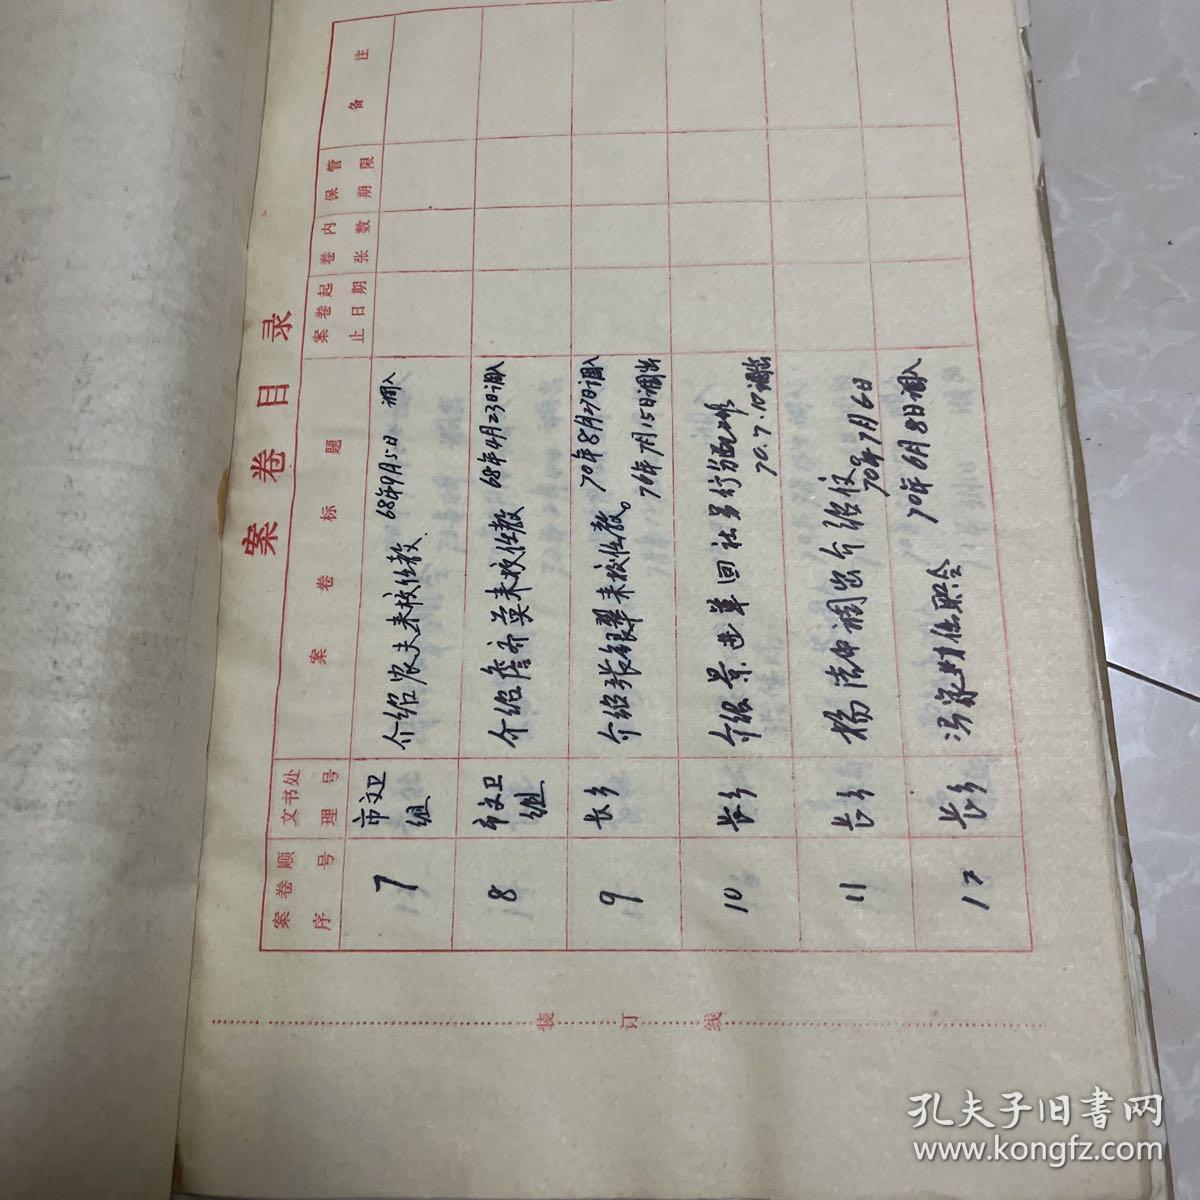 案卷目录
案卷顺序号 文书处理号 案卷标题 案卷起止日期 卷内张数 保管期限 备注
7 市文卫组 介绍农夫来校任教 68年9月5日 调入
8 市文卫组 介绍詹齐英来校任教 68年4月23日调入
9 长乡 介绍张银翠来校任教。 70年8月27日调入
76年7月15日调出
10 长乡 介绍景进革回社另行分配
70.7.10调出
11 长乡 杨 调出介绍信
70年7月6日
12 长乡 冯 任职令 70年6月8日调入
装订线
孔夫子旧书网
www.kongfz.com